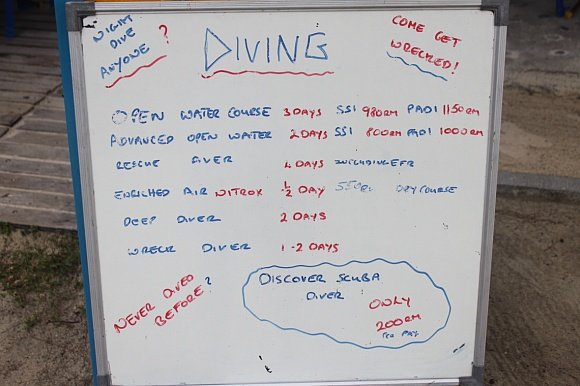 NIGHT DIVE ANYONE?
DIVING
COME GET WRECKED!
OPEN WATER COURSE 3 DAYS SSI 980RM PADI 1150RM
ADVANCED OPEN WATER 2 DAYS SSI 800RM PADI 1000RM
RESCUE DIVER 4 DAYS INCLUDING EFR
ENRICHED AIR NITROX 1/2 DAY DRY COURSE
DEEP DIVER 2 DAYS
WRECK DIVER 1-2 DAYS
NEVER DIVED BEFORE?
DISCOVER SCUBA
DIVER ONLY
200RM